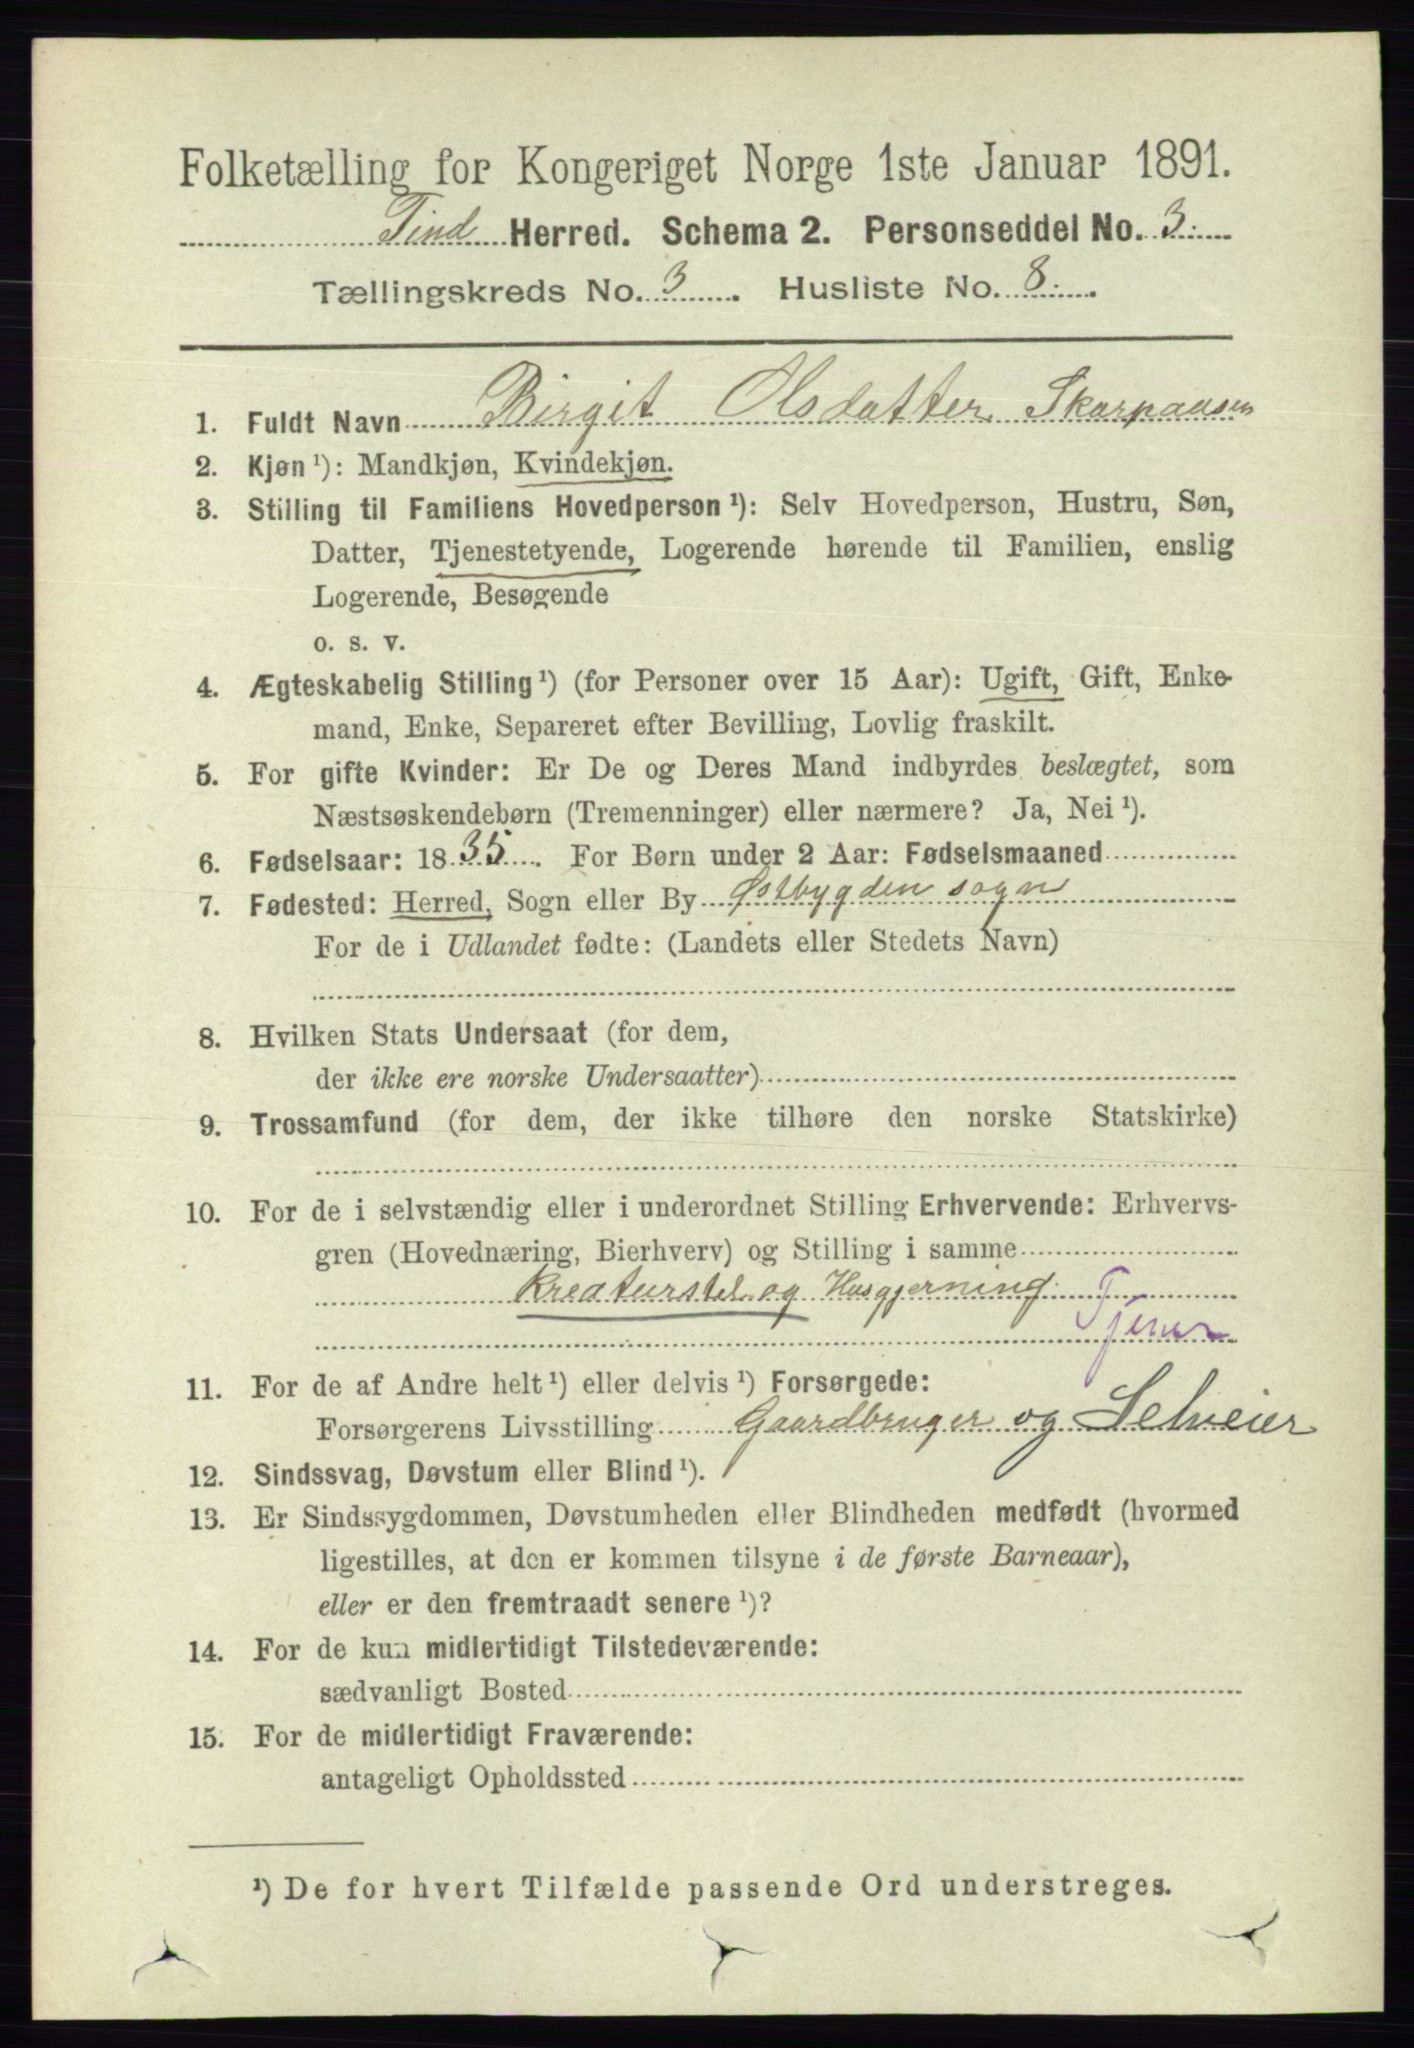 Folketælling for Kongeriget Norge 1ste Januar 1891.
Tind Herred. Schema 2. Personseddel No. 3.
Tællingskreds No. 3. Husliste No. 8.
1. Fuldt Navn Birgit Olsdatter Skarpaasen
2. Kjøn ¹): Mandkjøn, Kvindekjøn.
3. Stilling til Familiens Hovedperson ¹): Selv Hovedperson, Hustru, Søn,
Datter, Tjenestetyende, Logerende hørende til Familien, enslig
Logerende, Besøgende
o. s. v.
4. Ægteskabelig Stilling ¹) (for Personer over 15 Aar): Ugift, Gift, Enke-
mand, Enke, Separeret efter Bevilling, Lovlig fraskilt.
5. For gifte Kvinder: Er De og Deres Mand indbyrdes beslægtet, som
Næstsøskendebørn (Tremenninger) eller nærmere? Ja, Nei ¹).
6. Fødselsaar: 1835. For Børn under 2 Aar: Fødselsmaaned
7. Fødested: Herred, Sogn eller By Østbygden sogn
For de i Udlandet fødte: (Landets eller Stedets Navn)
8. Hvilken Stats Undersaat (for dem,
der ikke ere norske Undersaatter)
9. Trossamfund (for dem, der ikke tilhøre den norske Statskirke)
10. For de i selvstændig eller i underordnet Stilling Erhvervende: Erhvervs-
gren (Hovednæring, Bierhverv) og Stilling i samme
Kreaturstel og Husgjerning.
Tjener
11. For de af Andre helt ¹) eller delvis ¹) Forsørgede:
Forsørgerens Livsstilling Gaardbruger og Selveier
12. Sindssvag, Døvstum eller Blind ¹).
13. Er Sindssygdommen, Døvstumheden eller Blindheden medfødt (hvormed
ligestilles, at den er kommen tilsyne i de første Barneaar),
eller er den fremtraadt senere ¹)?
14. For de kun midlertidigt Tilstedeværende:
sædvanligt Bosted
15. For de midlertidigt Fraværende:
antageligt Opholdssted
¹) De for hvert Tilfælde passende Ord understreges.